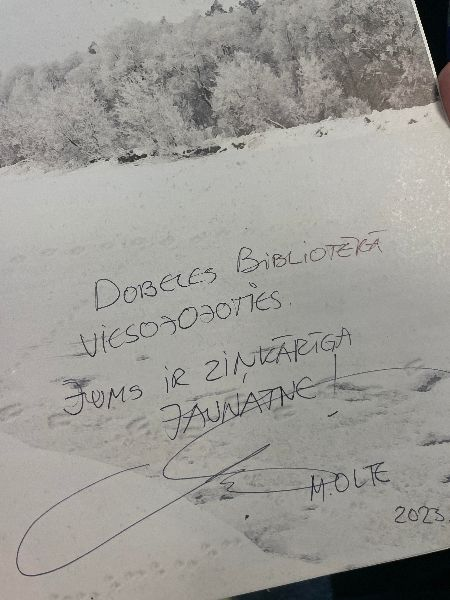 DOBELES BIBLIOTĒKĀ
VIESOJOJOTIES.
JUMS IR ZIŅKĀRĪGA
JAUNATNE!
M.OLTE
2023.